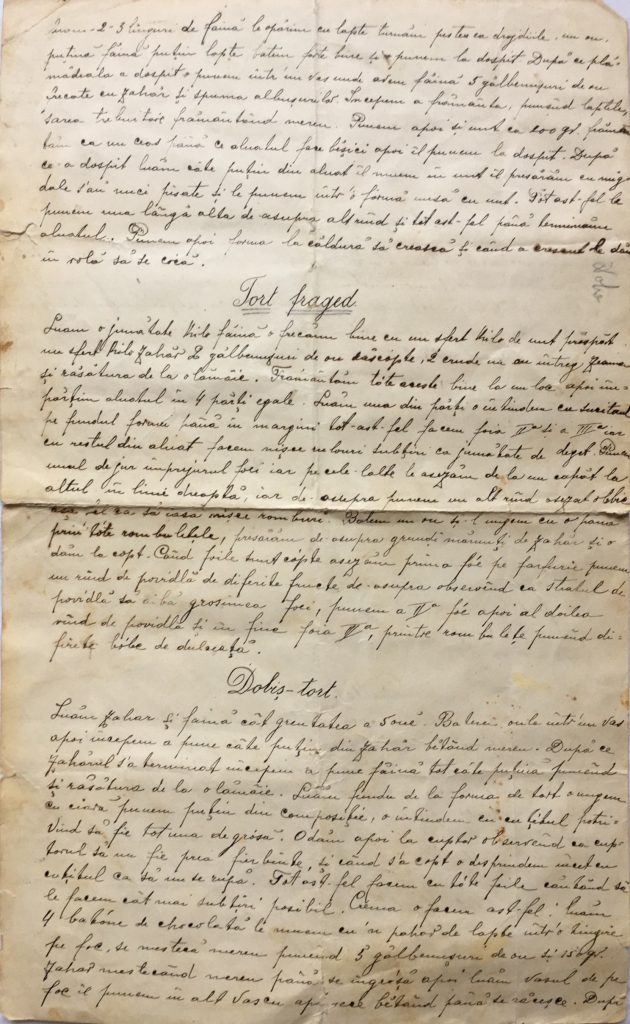 2-3 linguri de făină le opărim cu lapte turnăm peste ea drojdiile, un ou,
puțină făină puțin lapte batem forte bine și punem la dospit. După ce plă-
mădeala a dospit o punem într'un vas unde avem făină 5 gălbenușuri de ou
frecate cu zahăr și spuma albușurilor. Începem a frământa, punând laptele,
sarea trebuitore frământând mereu. Punem apoi și unt ca 200 gr. frămân-
tăm ca un cias până ce aluatul face bășici apoi îl punem la dospit. După
ce-a dospit luăm câte puțin din aluat îl muem în unt îl presărăm cu migdale
dale s'au nuci pisate și le punem într'o formă unsă cu unt. Tot ast-fel le
punem una lângă alta de-asupra alt rînd și tot ast-fel până terminăm
aluatul. Punem apoi forma la căldură să crească și când a crescut le dăm
în rolă să se cocă.
Tort fraged
Luăm o jumătate kilo făină o frecăm bine cu un sfert kilo de unt prospăt
un sfert kilo zahăr 2 gălbenușuri de ou răscopte, 2 crude un ou întreg zeama
și răsătura de la o lămâie. Frământăm tóte aceste bine la un loc, apoi îm-
părțim aluatul în 4 părți egale. Luăm una din părți o întindem cu sucitorul
pe fundul formei până în margini tot-ast-fel facem foia IIa și a IIIa iar
cu restul din aluat facem nisce sulouri subțiri ca jumătate de deget. Punem
unul de jur împrejurul foei iar pe cele-lalte le așezăm de la un capăt la
altul în linii dreaptă, iar de-asupra punem un alt rînd așezat oblic
ast-fel ca să iasă nisce romburi. Batem un ou și-l ungem cu o pană
prin tóte rombulețele, presărăm de-asupra grunđi mărunți de zahăr și o
dăm la copt. Când foile sunt cópte așezăm prima fóe pe farfurie punem
un rînd de povidlă de diferite fructe de-asupra observînd ca stratul de
povidlă să aibă grosimea foei, punem a IIa fóe apoi al doilea
rînd de povidlă și în fine foia IVa, printre rombulețe punînd di-
ferite bóbe de dulceață.
Dobiș-tort.
Luăm zahar și faină cât greutatea a 5 oué. Batem ouăle într'un vas
apoi începem a pune câte puțin din zahăr bétând mereu. După ce
zahărul s'a terminat începem a pune făină tot câte puțină punênd
și răsătura de la o lămâie. Luăm fundu de la forma de tort o ungem
cu ciară punem puțin din compoziție, o intindem cu cuțitul potri-
vind să fie tot una de grósă. O dăm apoi la cuptor observênd ca cup-
torul să nu fie prea fierbinte, și când s'a copt o desprindem încet cu
cuțitul ca să nu se rupă. Tot ast-fel facem cu tóte foile căutând să
le facem cât mai subțiri posibil. Crema o facem ast-fel: luăm
4 batóne de chocolată le muem cu 'n pahar de lapte într'o tingire
pe foc, se mestecă mereu punênd 5 gălbenușuri de ou și 150 gr.
zahar mestecând mereu până se îngróșă apoi luăm vasul de pe
foc îl punem în alt vas cu apă rece bétând până se răcesce. După